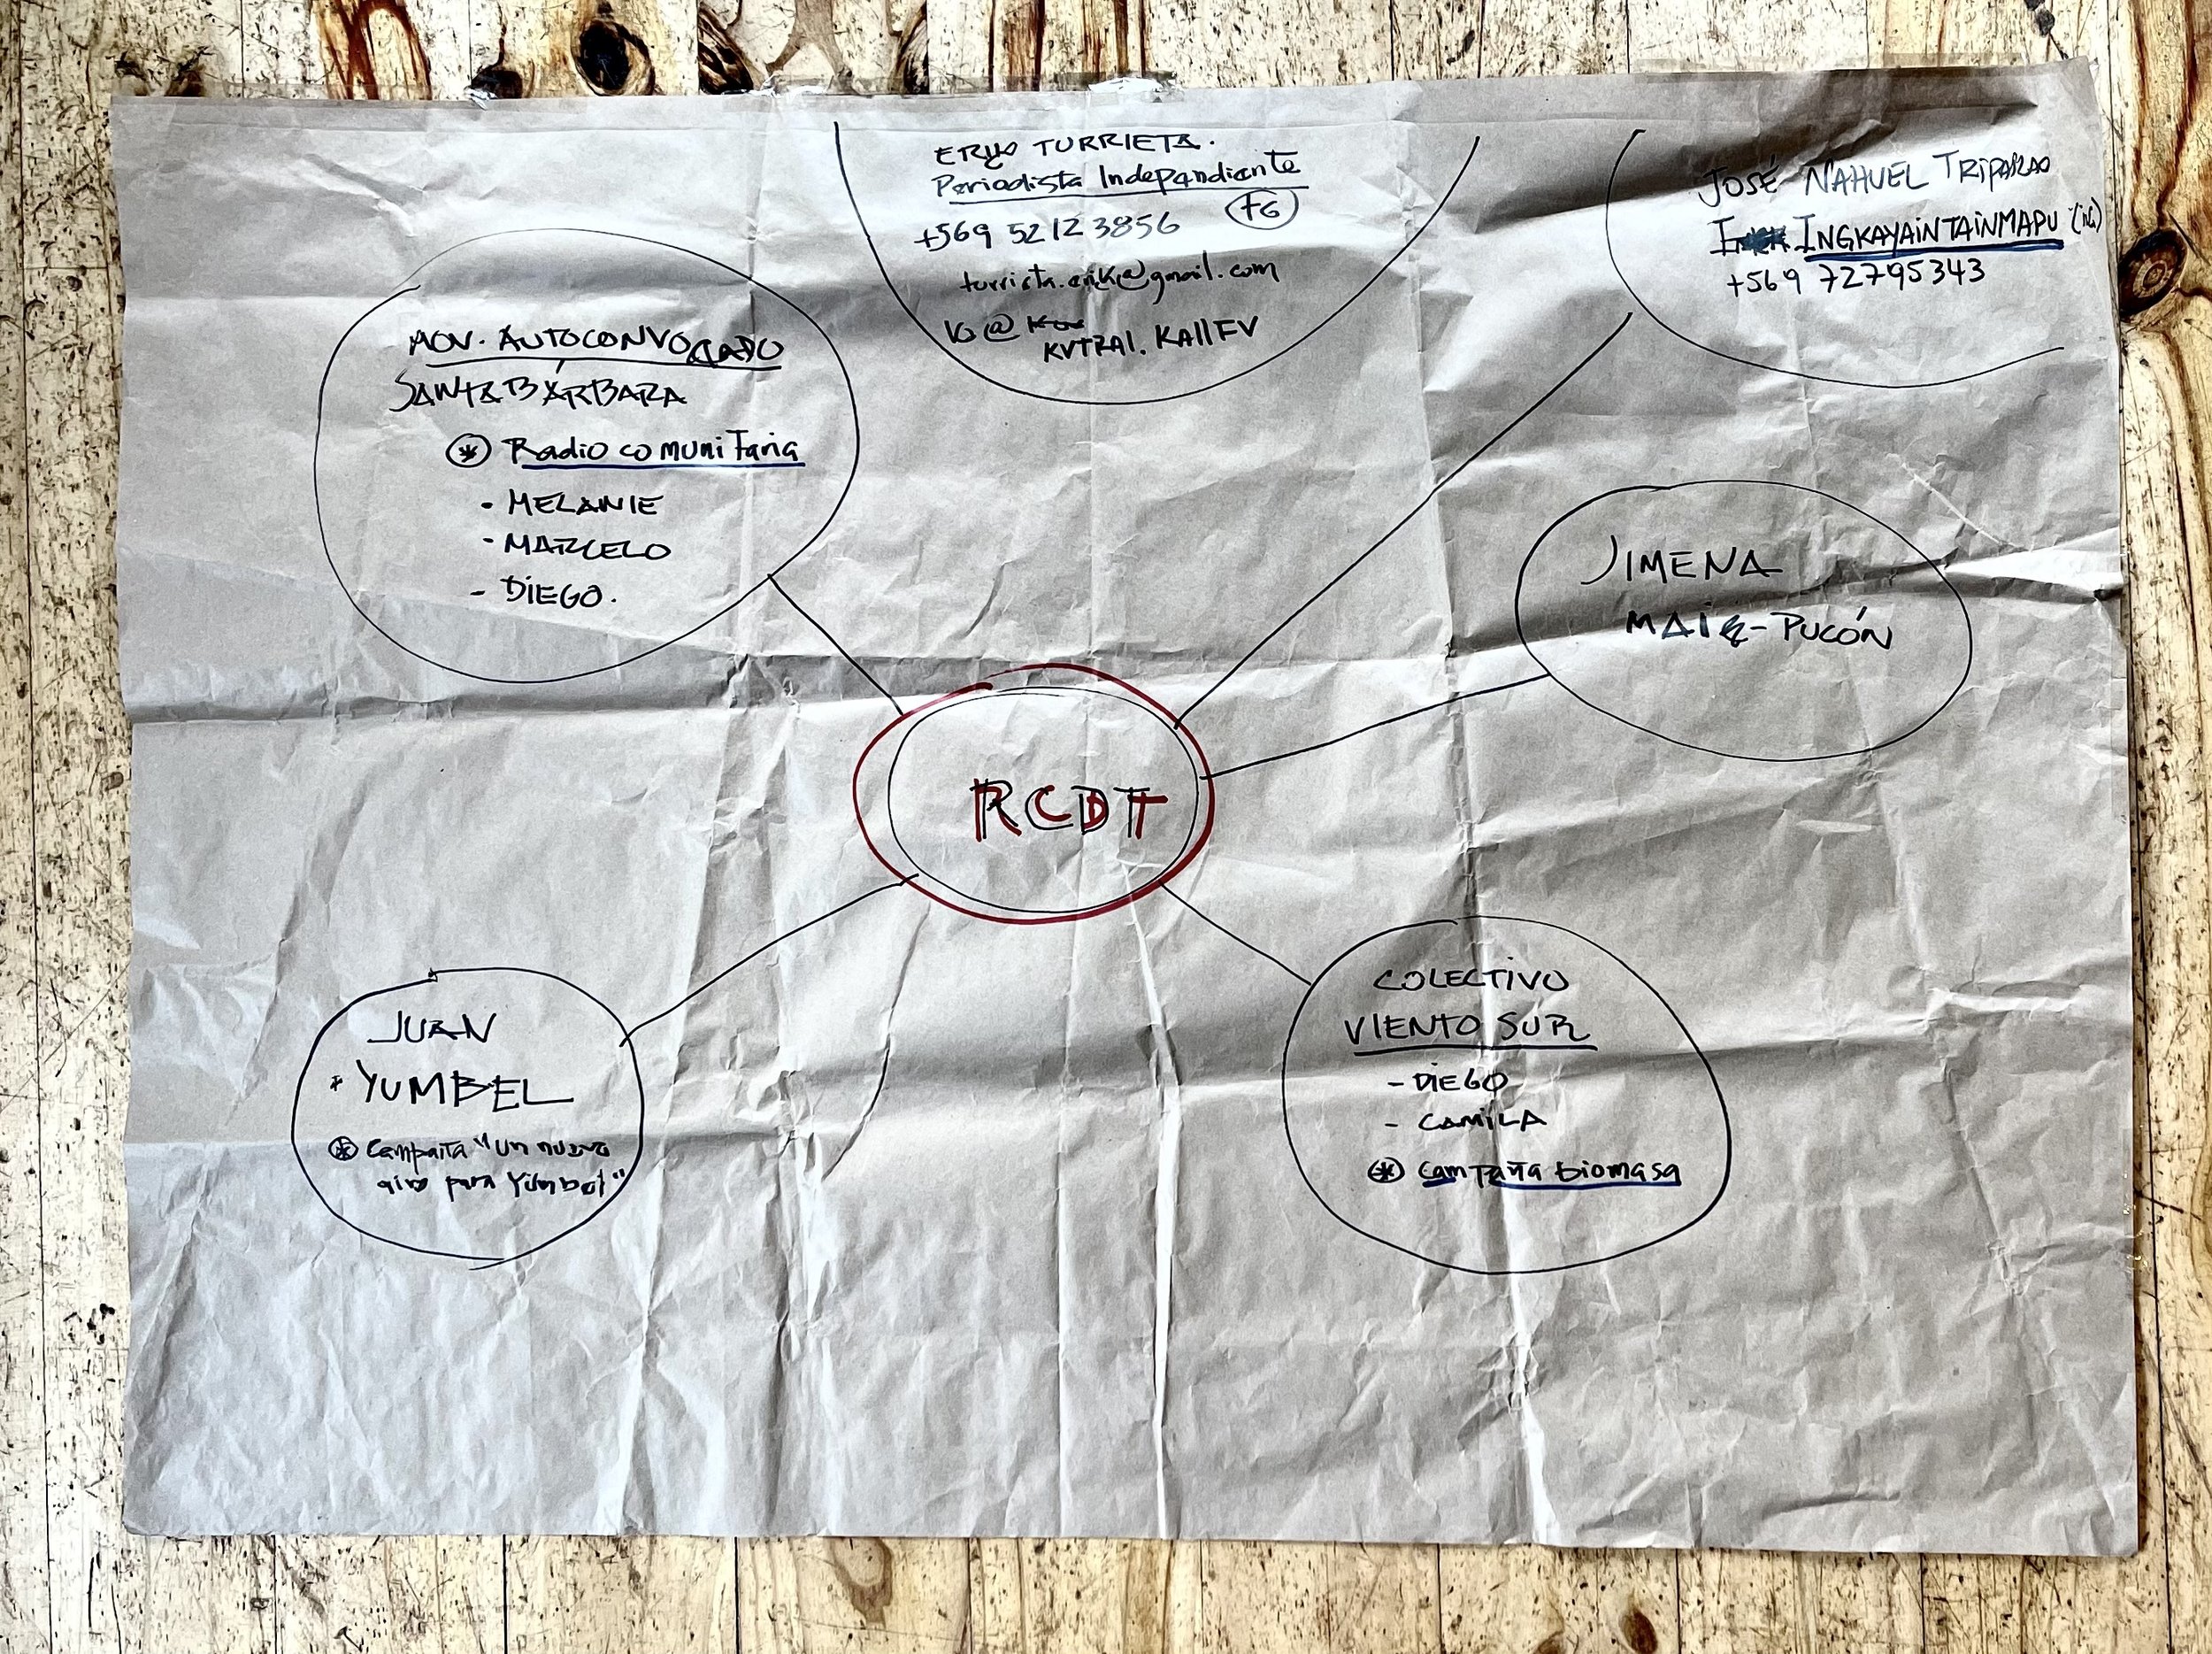 TURRIETA.
Periodista Independiente
+569 52123856 FG
turrieta.erik@gmail.com
IG @
KVTRAL.KALLFV
JOSÉ NAHUEL
INGKAYAINTAINMAPU (IG)
+569 72795343
MOV. AUTOCONVOCADO
SANTA BÁRBARA
Radio comunitaria
- MELANIE
- MARCELO
- DIEGO.
JIMENA
- PUCÓN
RCDT
JUAN
* YUMBEL
Campaña "Un nuevo
aire para Yumbel"
COLECTIVO
VIENTO SUR
- DIEGO
- CAMILA
Campaña biomasa